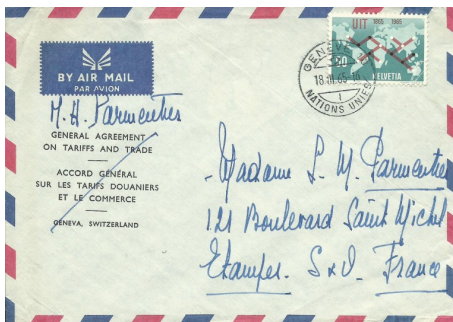 BY AIR MAIL
PAR AVION
M. H. Parmentier
GENERAL AGREEMENT
ON TARIFFS AND TRADE
ACCORD GÉNÉRAL
SUR LES TARIFS DOUANIERS
ET LE COMMERCE
GENEVA, SWITZERLAND
UIT 1865 1965
50 HELVETIA
GENÈVE
18.III.65
1
NATIONS UNIES
Madame L. M. Parmentier
121 Boulevard Saint Michel
Etampes. S & O. France